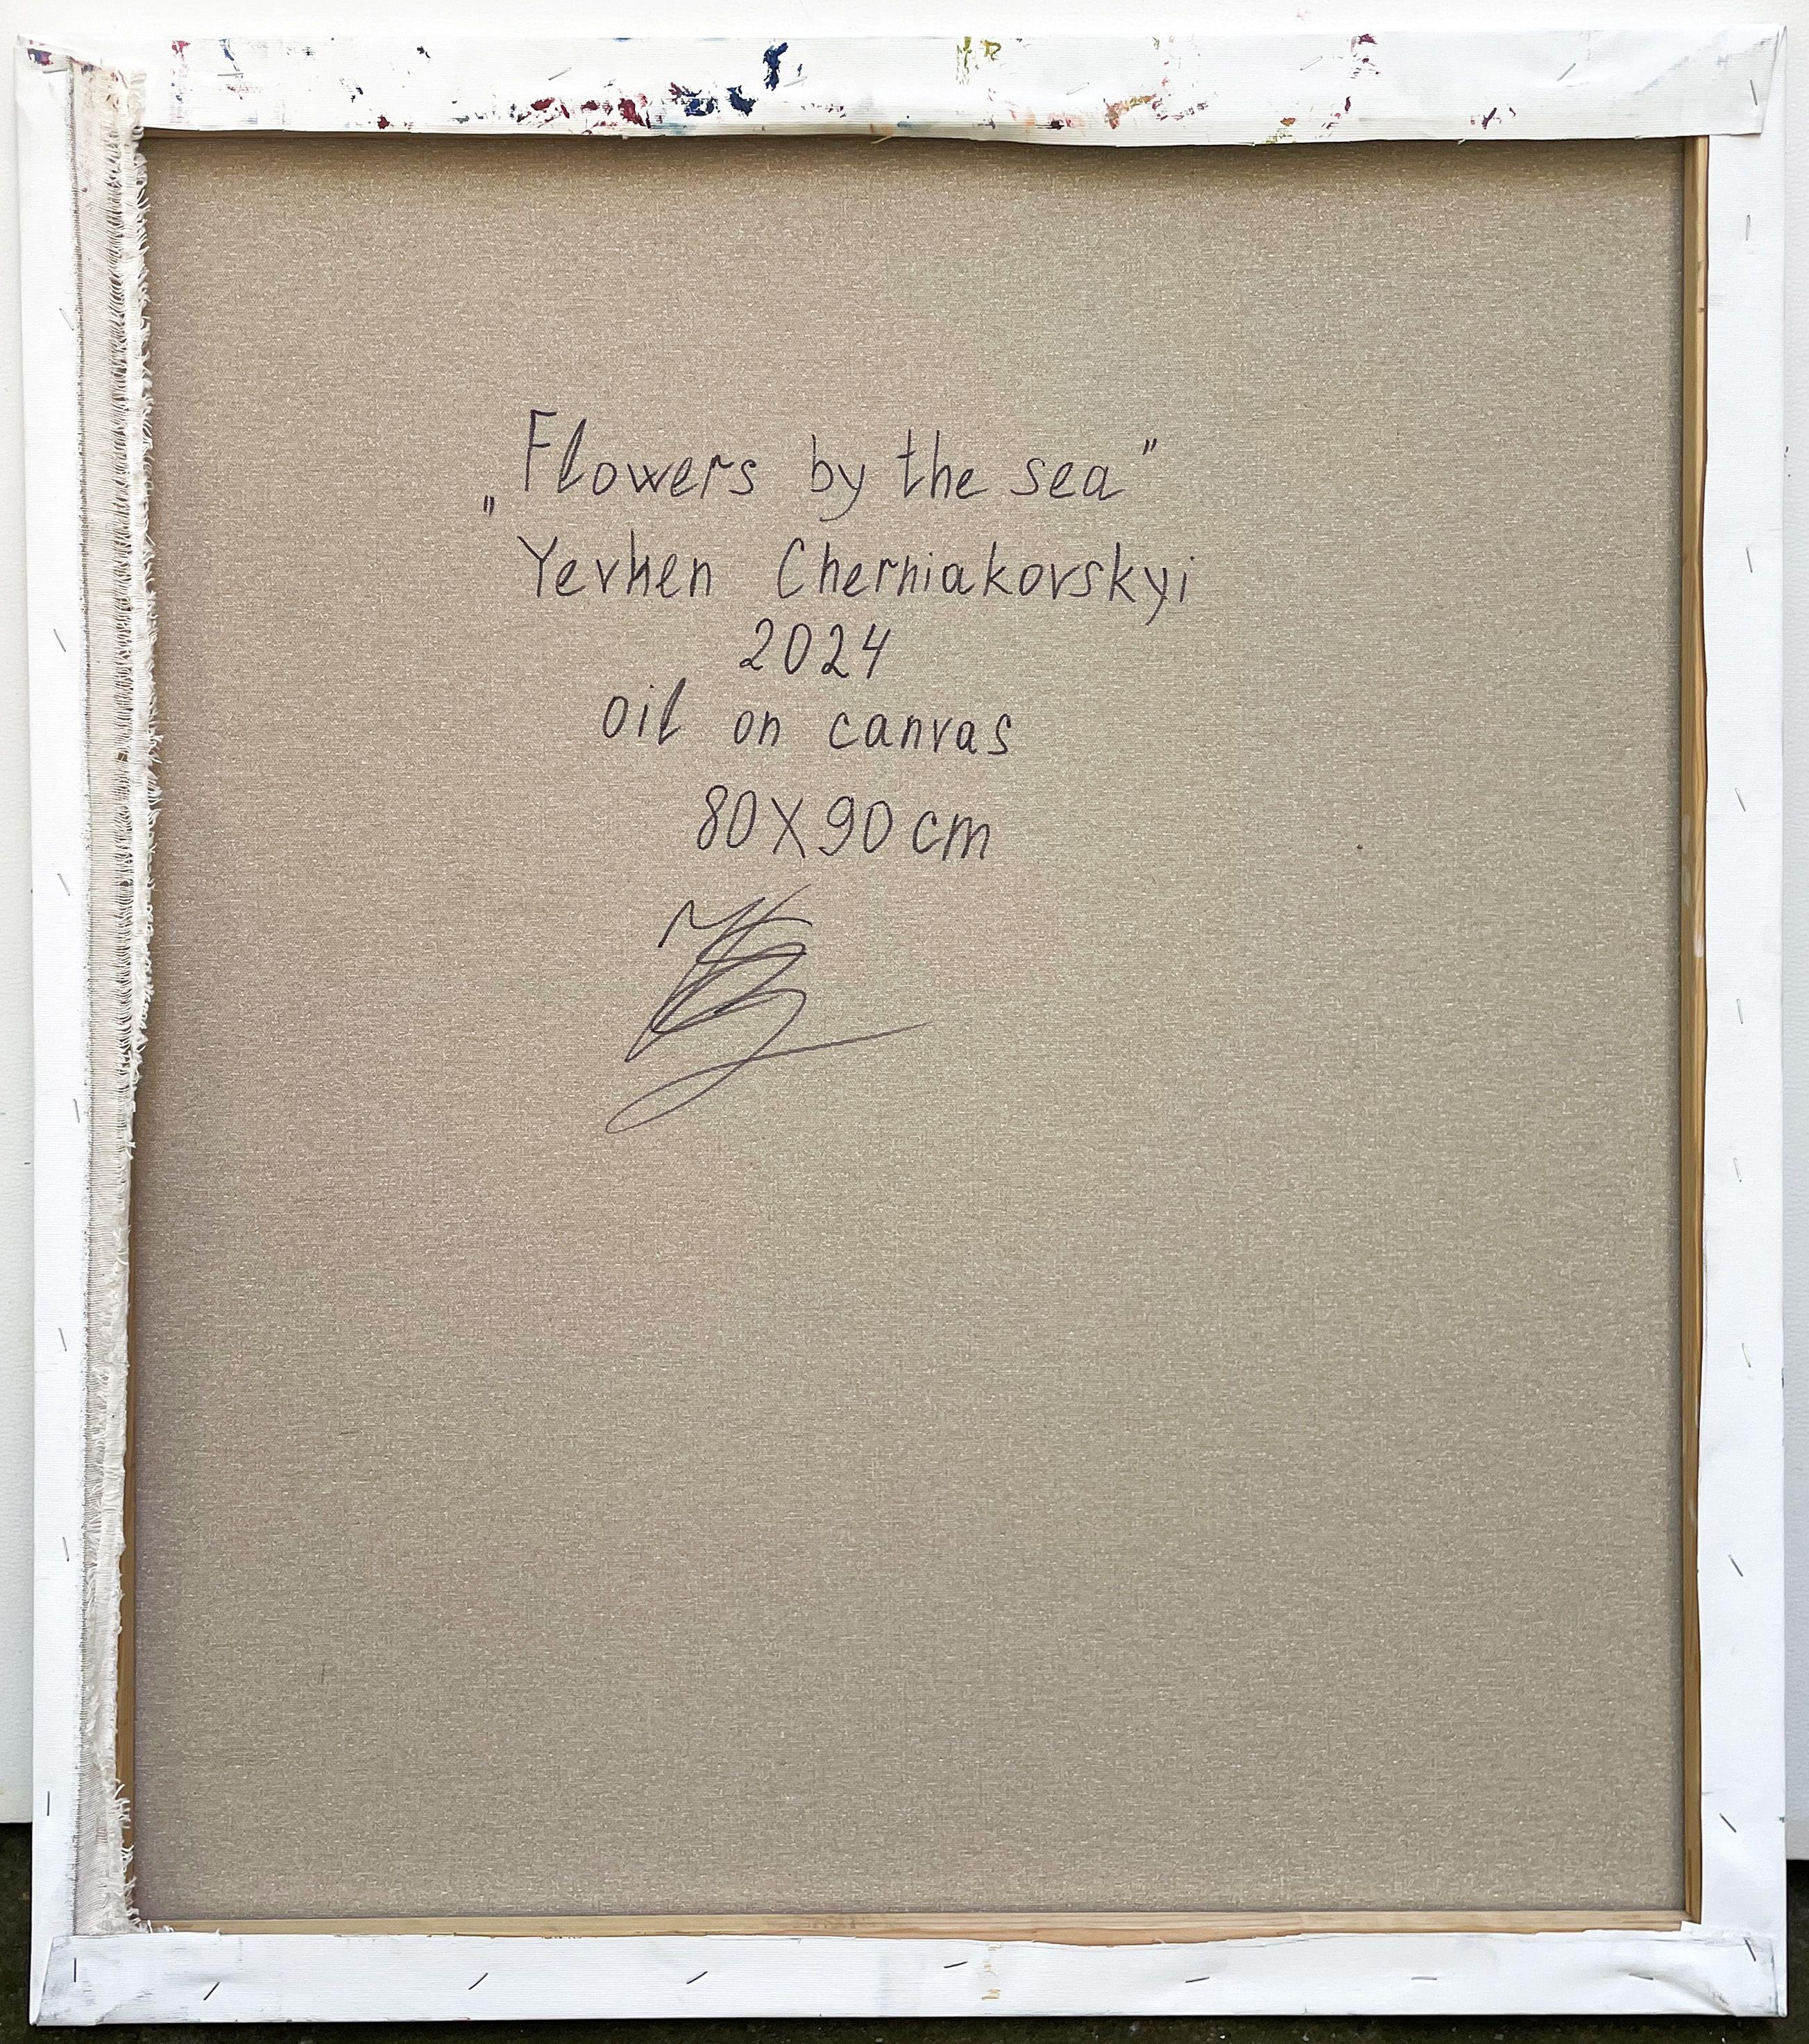 „Flowers by the sea"
Yevhen Cherniakovskyi
2024
oil on canvas
80X90cm